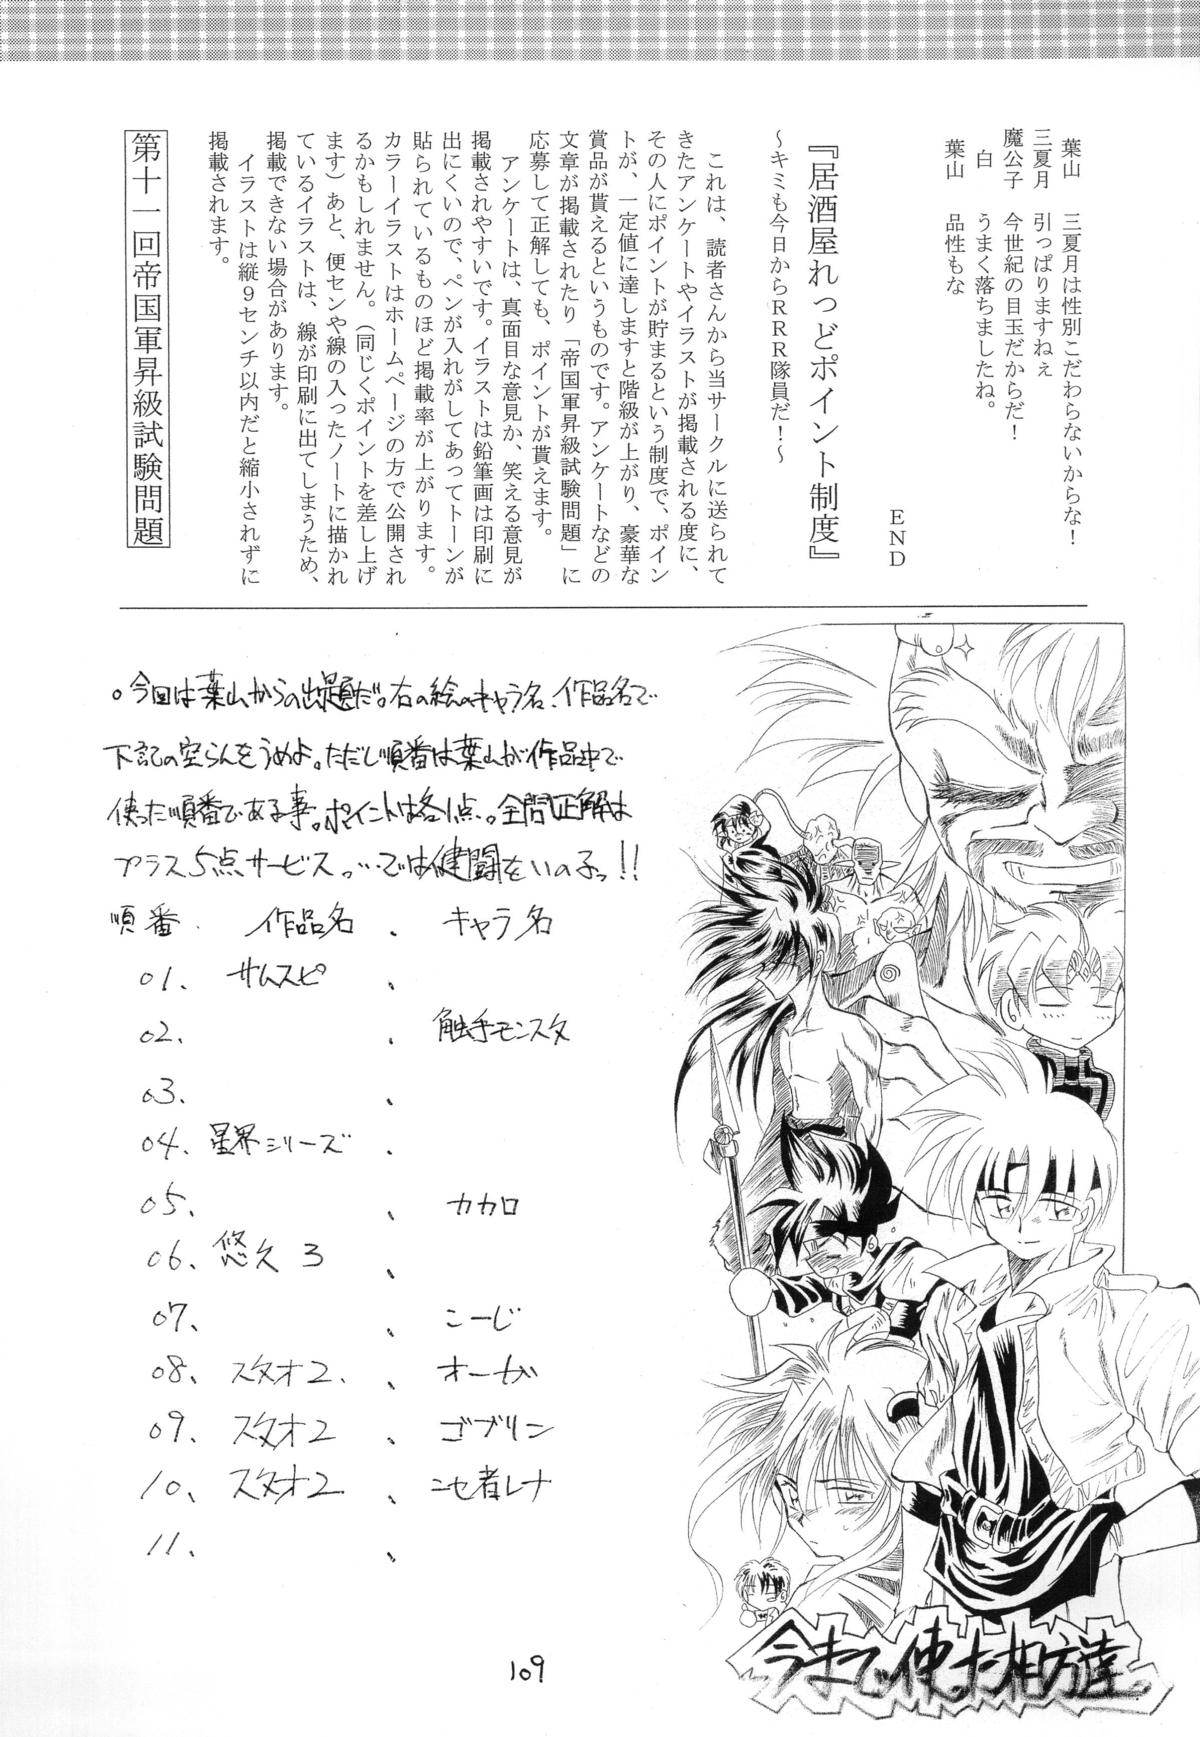 葉山　三夏月は性別こだわらないからな！
三夏月　引っぱりますねぇ
魔公子　今世紀の目玉だからだ！
白　うまく落ちましたね。
葉山　品性もな
END
『居酒屋れっどポイント制度』
～キミも今日からRRR隊員だ！～
これは、読者さんから当サークルに送られて
きたアンケートやイラストが掲載される度に、
その人にポイントが貯まるという制度で、ポイン
トが、一定値に達しますと階級が上がり、豪華な
賞品が貰えるというものです。アンケートなどの
文章が掲載されたり「帝国軍昇級試験問題」に
応募して正解しても、ポイントが貰えます。
アンケートは、真面目な意見か、笑える意見が
掲載されやすいです。イラストは鉛筆画は印刷に
出にくいので、ペンが入れがしてあってトーンが
貼られているものほど掲載率が上がります。
カラーイラストはホームページの方で公開され
るかもしれません。（同じくポイントを差し上げ
ます）あと、便センや線の入ったノートに描かれ
ているイラストは、線が印刷に出てしまうため、
掲載できない場合があります。
イラストは縦９センチ以内だと縮小されずに
掲載されます。
第十一回帝国軍昇級試験問題
。今回は葉山からの出題だ。右の絵のキャラ名、作品名で
下記の空らんをうめよ。ただし順番は葉山が作品中で
使った順番である事。ポイントは各1点。全問正解は
プラス5点サービスっ…では健闘をいのるっ!!
順番　作品名　、キャラ名
01. サムスピ　、
02.　、触手モンスタ
03.　、
04. 星界シリーズ　、
05.　、カカロ
06. 悠久3　、
07.　、こーじ
08. スタオ2　、オーガ
09. スタオ2　、ゴブリン
10. スタオ2　、ニセ者レナ
11.　、
今まで使った相方達。
109